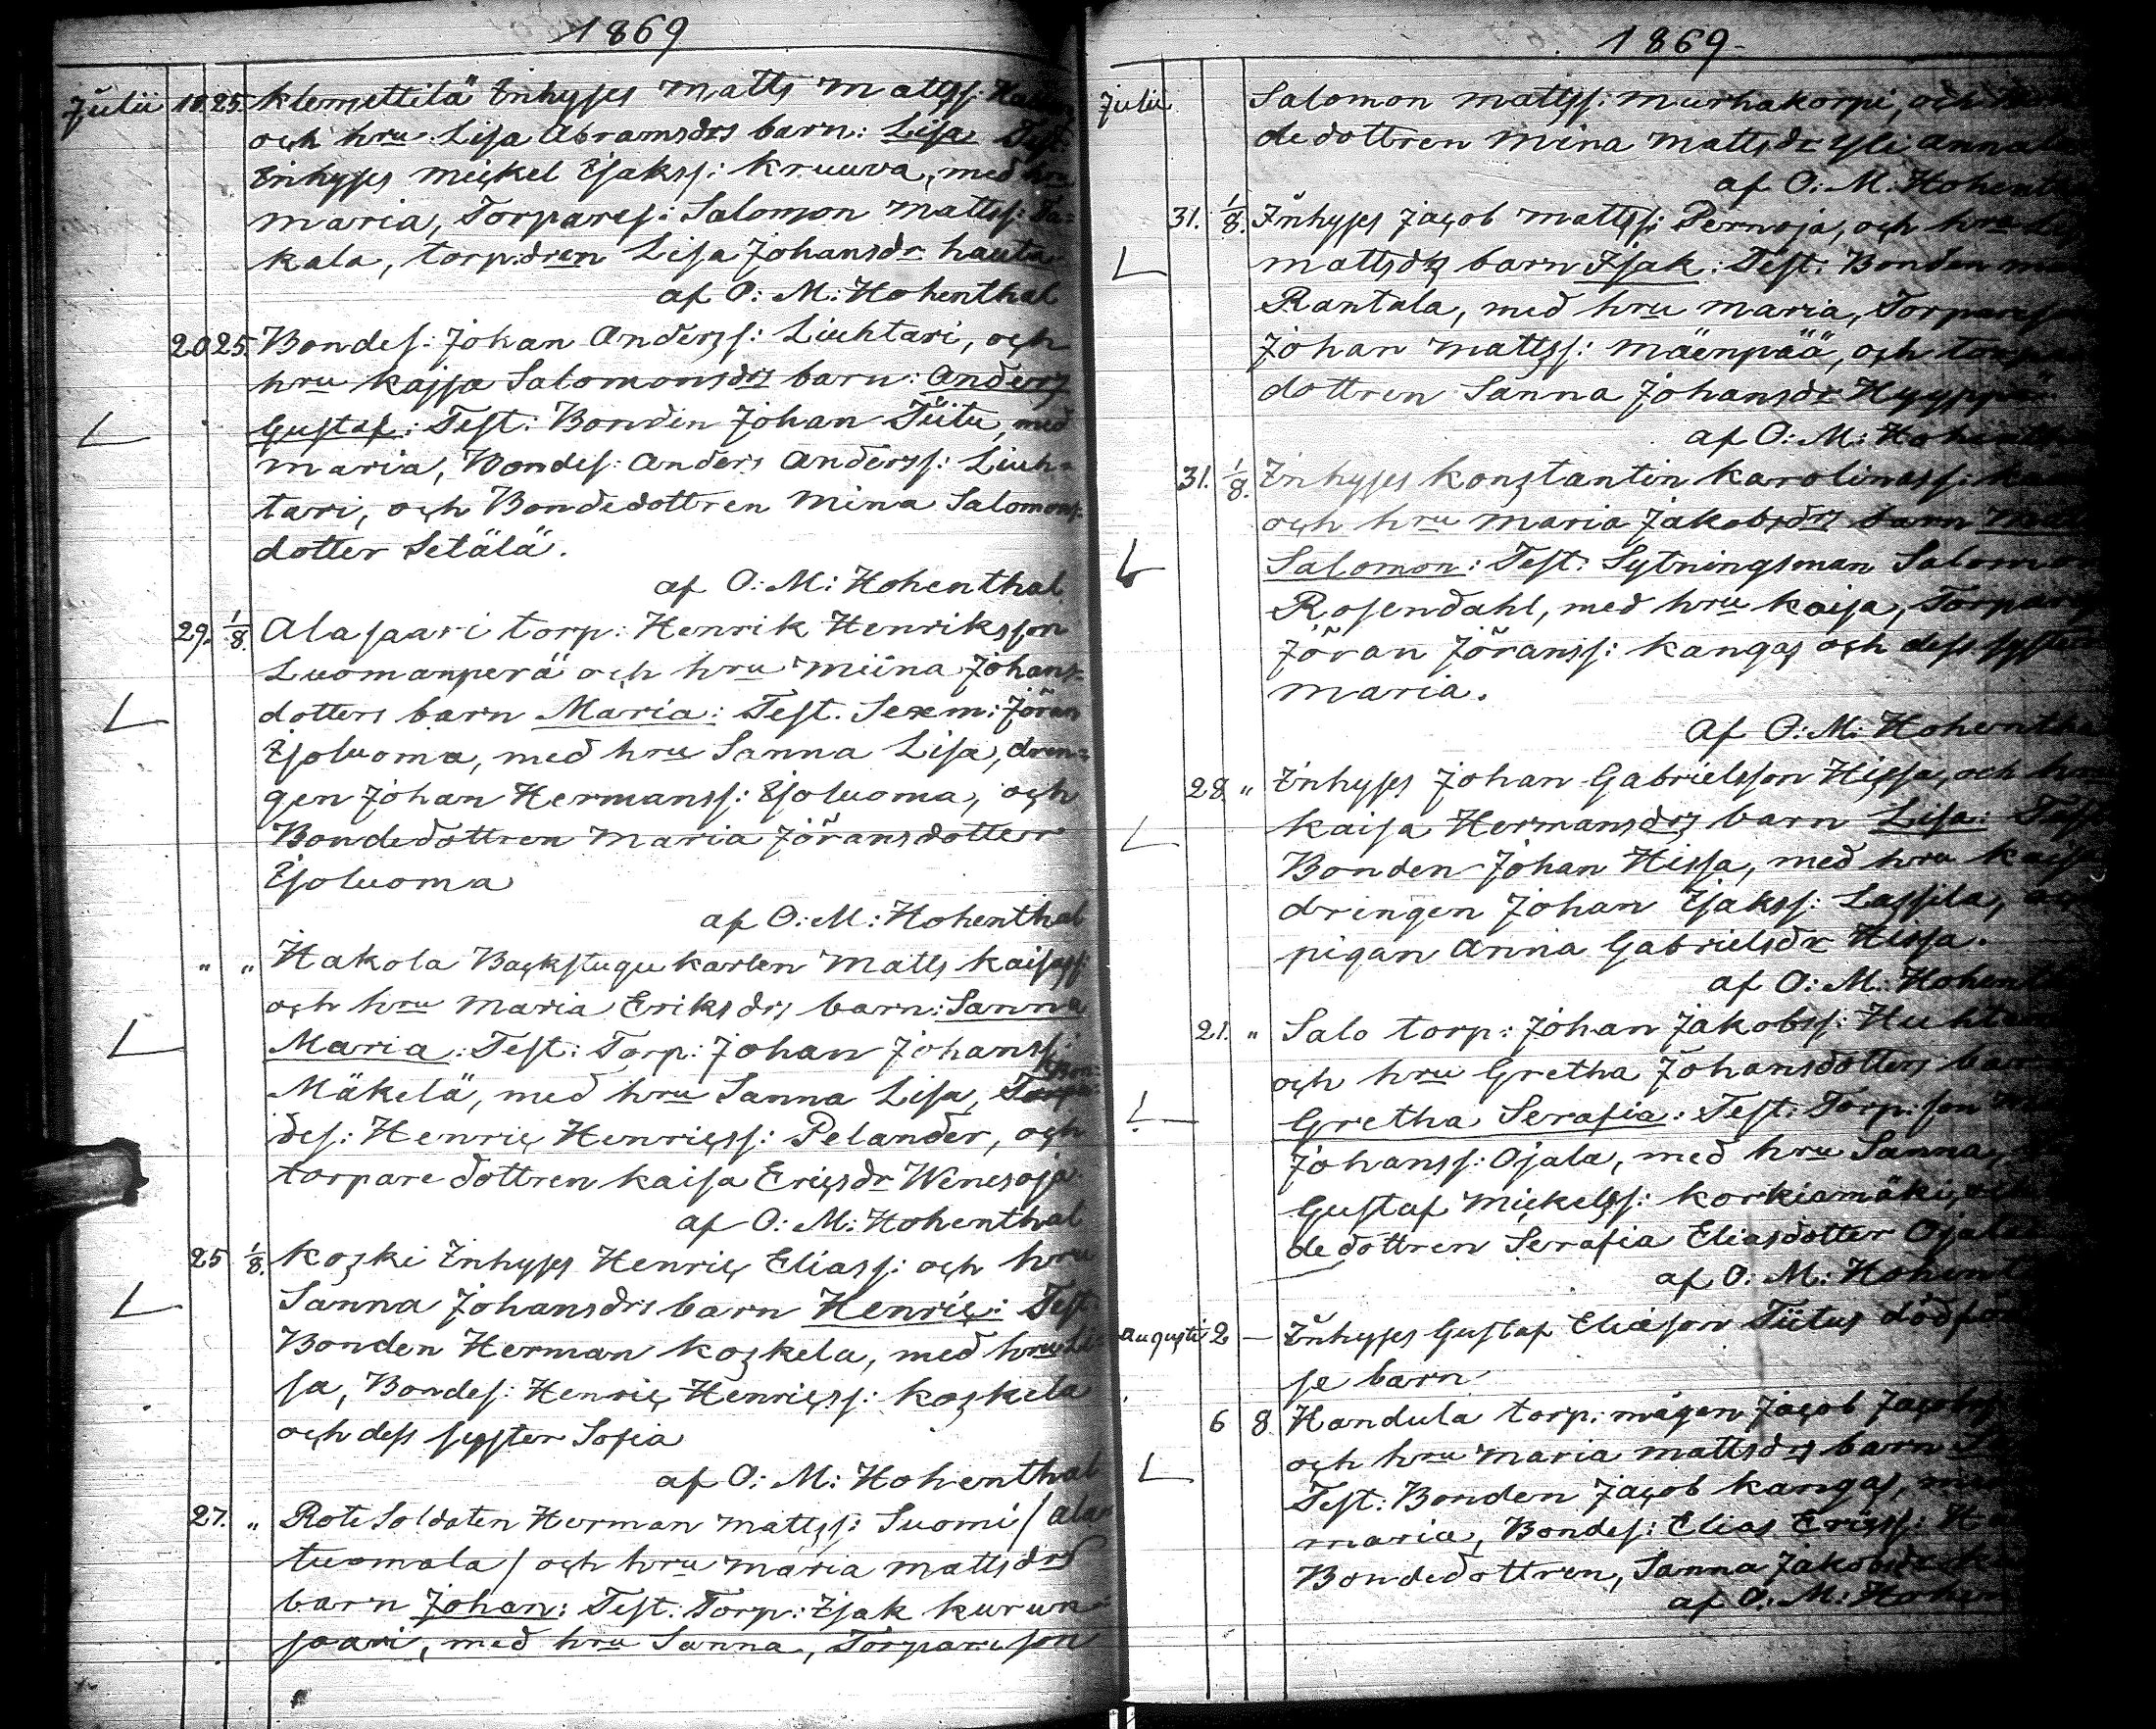 1869
Julii 10. 25. Klemettilä Inhyses Matts Mattss:
och hru Lisa Abramsdrs barn: Lisa Test:
Inhyses Mickel Isakss: Kruuva, med hru
Maria, Torpares: Salomon Mattss: Ta=
kala, torp.dren Lisa Johansdr hauta
af O: M: Hohenthal
20 25. Bondes: Johan Anderss: Liuhtari, och
hru Kajsa Salomonsdrs barn: Anders
Gustaf: Test: Bonden Johan Tiitu, med
Maria, Bondes: Anders Anderss: Liuh=
tari, och Bondedottren Mina Salomons
dotter Setälä.
af O: M: Hohenthal
29. 1/8. Alasaari torp: Henrik Henriksson
Luomanperä och hru Miina Johans=
dotters barn Maria: Test. Sexm: Jöran
Isoluoma, med hru Sanna Lisa, dren=
gen Johan Hermanss: Isoluoma, och
Bondedottren Maria Jöransdotter
Isoluoma
af O: M: Hohenthal
" " Hakola Backstugukarlen Matts Kaisass:
och hru Maria Eriksdrs barn: Sanna
Maria: Test: Torp: Johan Johanss:
Mäkelä, med hru Sanna Lisa, Bon=
des: Henric Henricss: Pelander, och
torparedottren Kaisa Ericsdr Wenesoja
af O: M: Hohenthal
25 1/8. Koski Inhyses Henric Eliass: och hru
Sanna Johansdrs barn Henric: Test.
Bonden Herman Koskela, med hru Li=
sa, Bondes: Henric Henricss: Koskela
och dess syster Sofia
af O: M: Hohenthal
27. " Rote Soldaten Herman Mattss: Suomi / Ala=
tuomala / och hru Maria Mattsdrs
barn Johan: Test: Torp: Isak Kurun=
saari, med hru Sanna, Torpareson
1869
Julii Salomon Mattss: Murhakorpi, och
dedottren Mina Mattsdr Yli Annala
af O: M: Hohenthal
31. 1/8. Inhyses Jacob Mattss: Pernoja, och hru
Mattsdrs barn Isak: Test: Bonden
Rantala, med hru Maria, Torpareson
Johan Mattss: Mäenpää, och torpare
dottren Sanna Johansdr Hyyppä
af O: M: Hohenthal
31. 1/8. Inhyses Konstantin Karolinass:
och hru Maria Jakobsdrs barn
Salomon: Test: Sytningsman Salomon
Rosendahl, med hru Kaisa, Torpares
Jöran Jöranss: Kangas och dess syster
Maria.
af O: M: Hohenthal
28 " Inhyses Johan Gabrielsson Hissa, och hru
Kaisa Hermansdrs barn Lisa: Test
Bonden Johan Hissa, med hru Kaisa
drengen Johan Isakss: Lassila, och
pigan Anna Gabrielsdr Hissa.
af O: M: Hohenthal
21. " Salo torp: Johan Jakobss:
och hru Gretha Johansdotters barn
Gretha Serafia: Test: Torp: son
Johanss: Ojala, med hru Sanna,
Gustaf Mickelss: Korkiamäki, och
dedottren Serafia Eliasdotter Ojala
af O: M: Hohenthal
Augusti 2 — Inhyses Gustaf Eliason Tiitus dödföd=
se barn
6 8 Handula torp: mågen Jacob Jacobss
och hru Maria Mattsdrs barn
Test: Bonden Jacob Kangas, med
Maria, Bondes: Elias Ericss:
Bondedottren, Sanna Jakobsdr
af O: M: Hohenthal